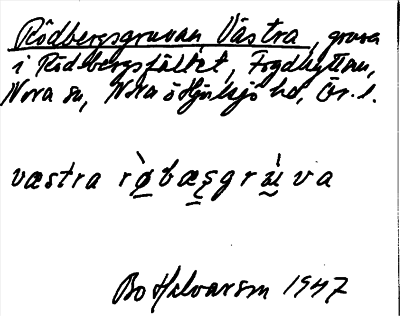 Rödbergsgruvan, Västra, gruva
i Rödbergsfältet, Fogdhyttan,
Nora sn, Nora o Hjulsjö hd, Ör. l.
væstra rø̀bæsgrùva
Bo Halvarson 1947